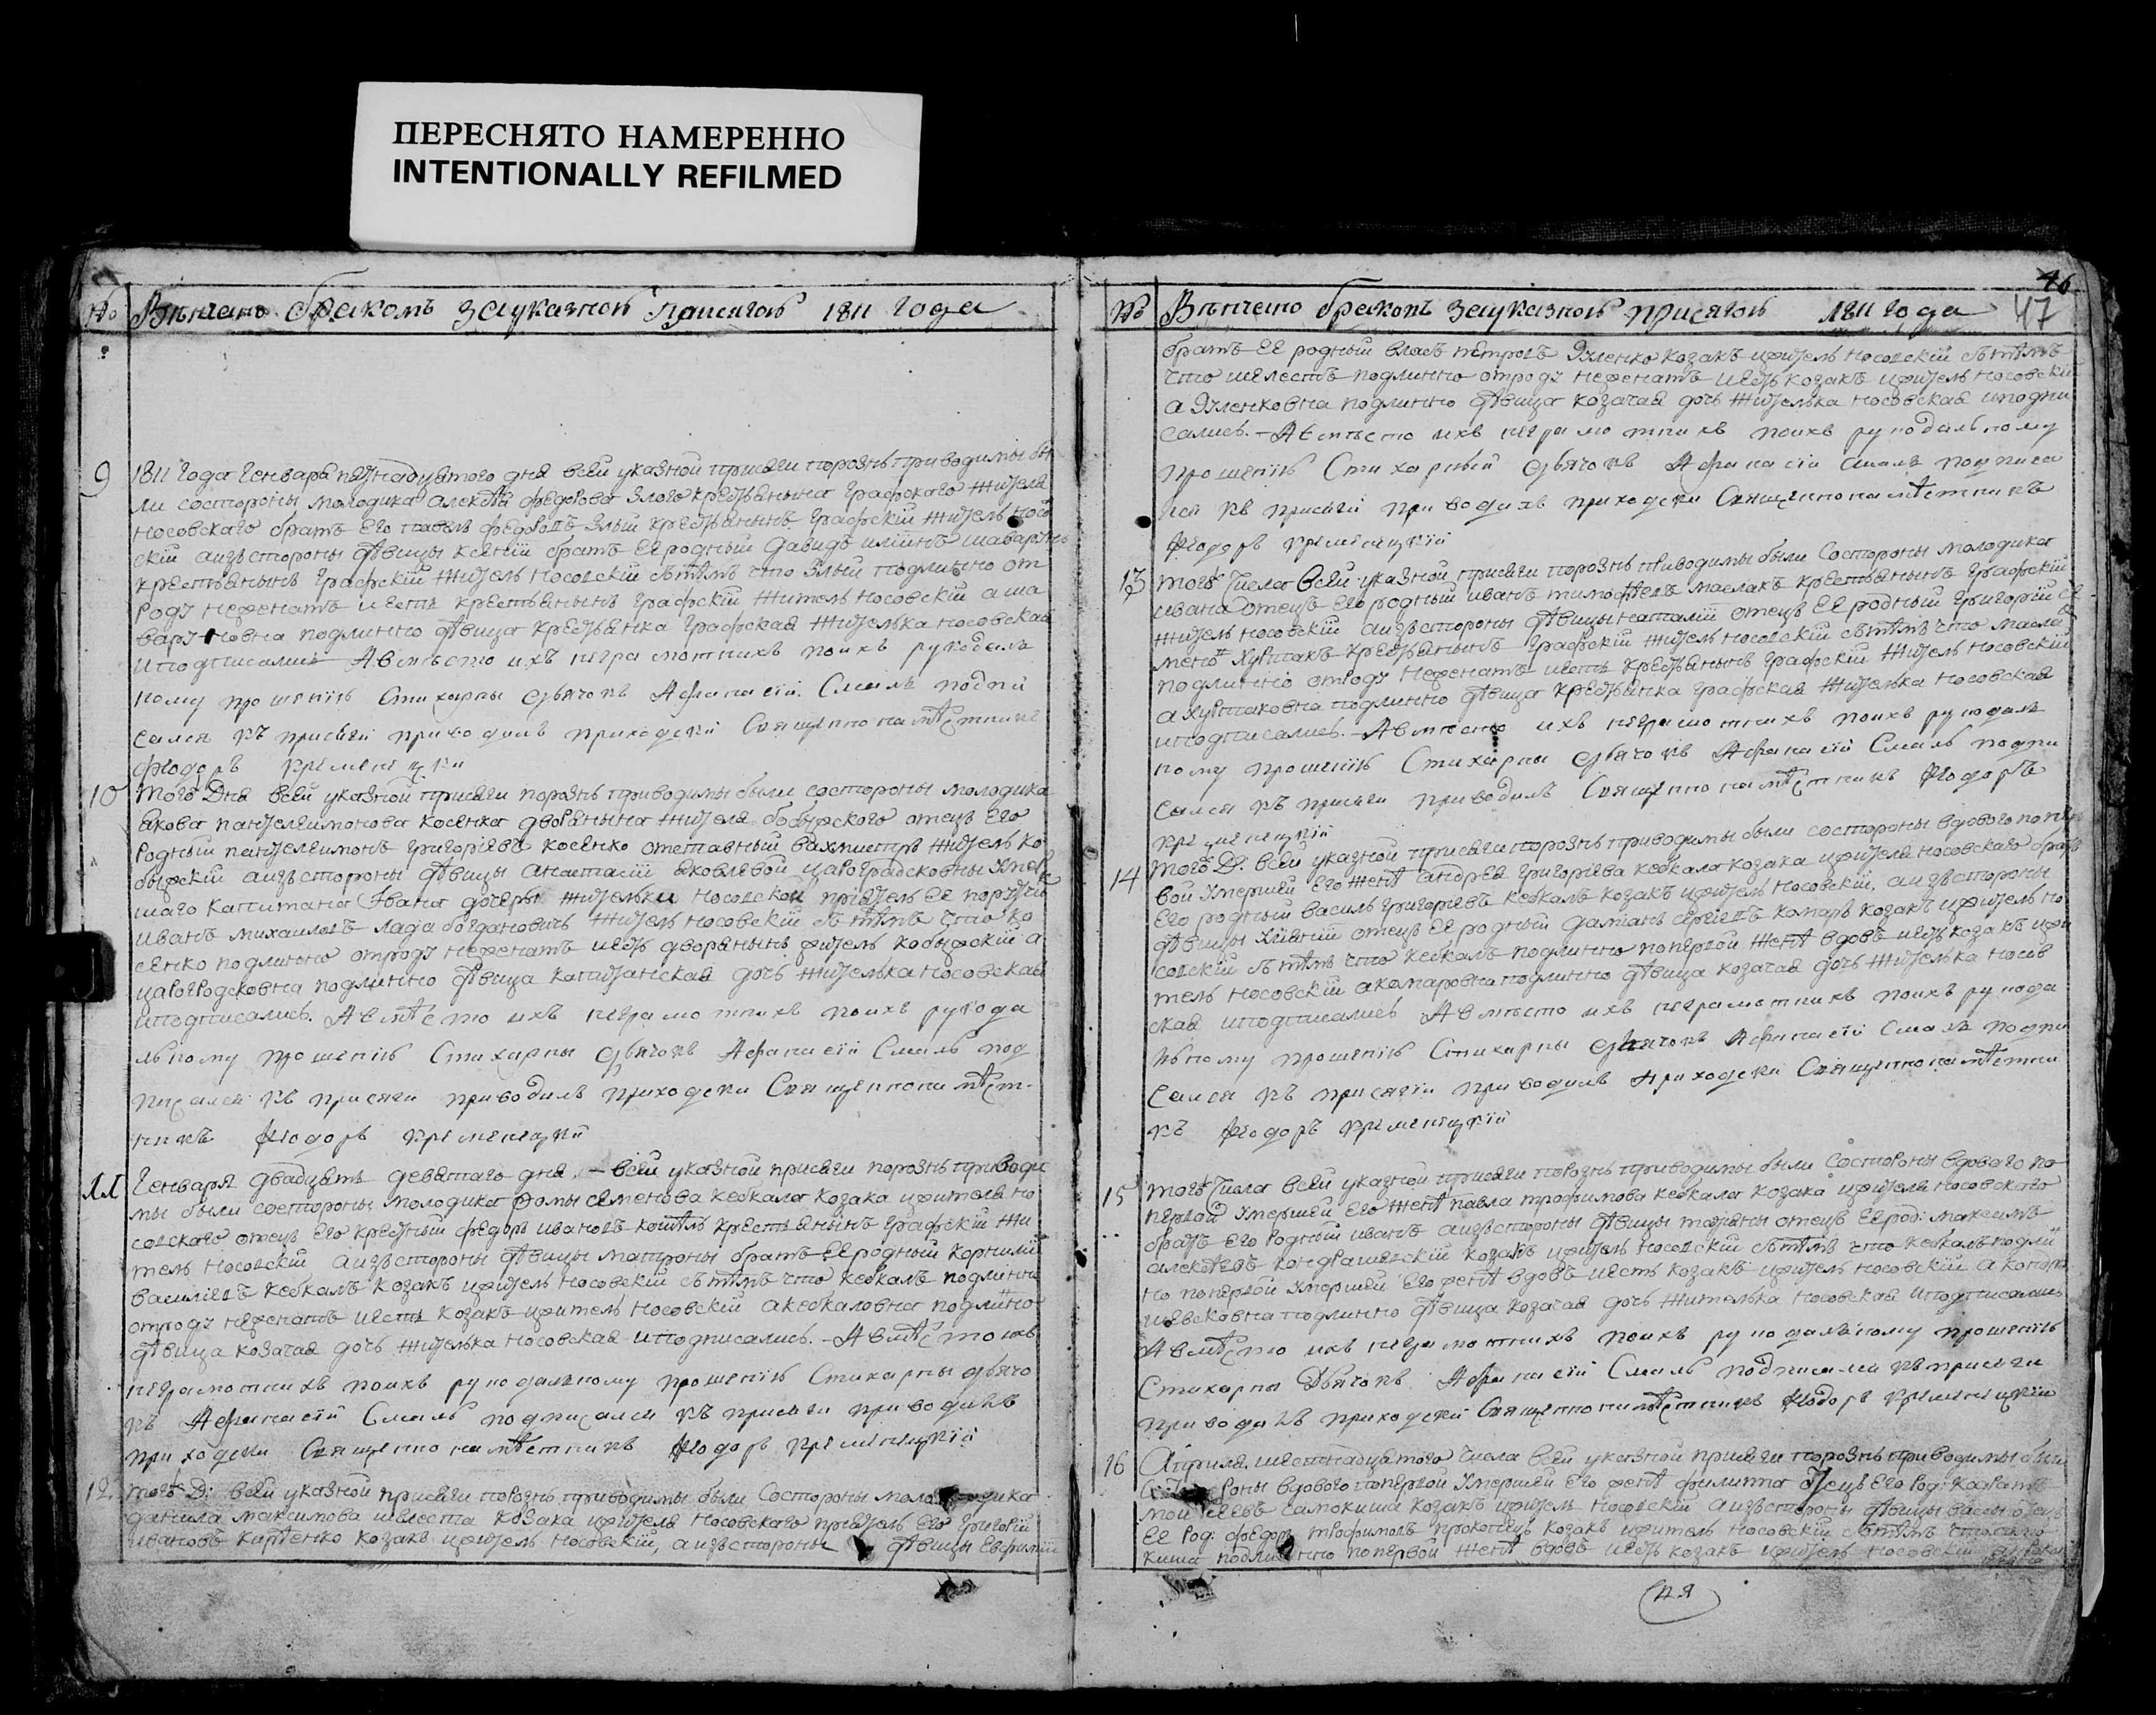 ПЕРЕСНЯТО НАМЕРЕННО
INTENTIONALLY REFILMED
№ Вѣнчано бракомъ за указною присягою 1811 года
9 1811 года Генваря пятнадцятого дня всей указной присяги порознь приводимы бы
ли состороны молодика Алексѣя Федорова Злого крестьянына Графского жителя
Носовского братъ его Павелъ Федоровъ Злый крестьянынъ Графскій житель Носов
скій аизъстороны дѣвицы Ксеніи братъ ее родный Давидъ Иліинъ
крестьянынъ Графскій житель Носовскій вътѣмъ что Злый подлинно от
роду неженатъ иесть крестьянынъ Графскій житель Носовскій а Ша
вару новна подлинно дѣвица крестьянка Графская жителька Носовская
иподписались Авмѣсто ихъ неграмотнихъ поихъ рукодаль
ному прошенію Стихарны дьячокъ Афанасій Смаль подпи
сался къ присяги приводилъ приходски Священнонамѣстникъ
Феодоръ Кременецки
10 Того Дня всей указной присяги порознь приводимы были состороны молодика
Якова Пантелеимонова Косенка дворянына жителя Кобыжского отецъ его
родный Пантелеимонъ Григоріевъ Косенко отставный вахмистръ житель Ко
быжскій аизъстороны дѣвицы Анастасіи Яковлевой Цароградсковны Умер
шаго Капитана дочеры жительки Носовской пріятель ее порутчи
Иванъ Михаиловъ Лада Богдановичъ житель Носовскій вътѣмъ что Ко
сенко подлинно отроду неженатъ иесть дворянынъ житель Кобыжскій а
Цароградсковна подлинно дѣвица капитанская дочь жителька Носовская
иподписались. Авмѣсто ихъ неграмотнихъ поихъ рукода
льному прошенію Стихарны дьячокъ Афанасій Смаль под
писался къ присяги приводилъ приходски Священнонамѣст-
никъ Феодоръ Кременецкій
11 Генваря двадцять девятаго дня. – всей указной присяги порознь приводи
мы были состороны молодика Фомы Семенова Кебкала козака ижителя Но
совского отецъ его крестный Федоръ Ивановъ крестьянынъ Графскій жи
тель Носовскій аизъстороны дѣвицы Матроны братъ ее родный Корнилій
Василіевъ Кебкалъ козакъ ижитель Носовскій вътѣмъ что Кебкалъ подлинно
отроду неженатъ иесть козакъ ижитель Носовскій аКебкаловна подлинно
дѣвица козачая дочь жителька Носовская иподписались. – Авмѣсто ихъ
неграмотнихъ поихъ рукодальному прошенію Стихарны дьячо
къ Афанасій Смаль подписался къ присяги приводилъ
приходски Священнонамѣстникъ Феодоръ Кременецкій
12. Того Д: всей указной присяги порознь приводимы были Состороны молодика
Данила Максимова Шелеста козака ижителя Носовского пріятель его Григорій
Ивановъ козакъ ижитель Носовскій, аизъстороны дѣвицы Евфиміи
46
47
№ Вѣнчано бракомъ за указною присягою 1811 года
братъ ее родный Власъ Петровъ козакъ ижитель Носовскій вътѣмъ
что Шелестъ подлинно отроду неженатъ иесть козакъ ижитель Носовскій
а подлинно дѣвица козачая дочь жителька Носовская иподпи
сались. – Авмѣсто ихъ неграмотнихъ поихъ рукодальному
прошенію Стихарный дьячокъ Афанасій Смаль подписа
лся къ присяги приводилъ приходски Священнонамѣстникъ
Феодоръ Кременецкій
13 Того Числа всей указной присяги порознь приводимы были Состороны молодика
Ивана отецъ его родный Иванъ Тимофѣевъ Маслакъ крестьянынъ Графскій
житель Носовскій аизъстороны дѣвицы Наталіи отецъ ее родный Григорій Се
менъ крестьянынъ Графскій житель Носовскій вътѣмъ что Масла
подлинно отроду неженатъ иесть крестьянынъ Графскій житель Носовскій
а подлинно дѣвица крестьянка Графская жителька Носовская
иподписались. – Авмѣсто ихъ неграмотнихъ поихъ рукодаль
ному прошенію Стихарны дьячокъ Афанасій Смаль подпи
сался къ присяги приводилъ Священнонамѣстникъ Феодоръ
Кременецкій
14 Того Д: всей указной присяги порознь приводимы были состороны вдового попер
вой Умершей его женѣ Андрея Григоріева Кебкала козака ижителя Носовского братъ
его родный Василь Григоріевъ Кебкалъ козакъ ижитель Носовскій, аизъстороны
дѣвицы отецъ ее родный Даміанъ Сергіевъ Комаръ козакъ ижитель Но
совскій вътѣмъ что Кебкалъ подлинно попервой женѣ вдовъ иесть козакъ ижи
тель Носовскій аКомаровна подлинно дѣвица козачая дочь жителька Носов
ская иподписались Авмѣсто ихъ неграмотнихъ поихъ рукода
льному прошенію Стихарны дьячокъ Афанасій Смаль подпи
сался къ присягіи приводилъ приходски Священнонамѣстни
къ Феодоръ Кременецкій
15 Того Числа всей указной присяги порознь приводимы были Состороны вдового по
первой Умершей его женѣ Павла Трофимова Кебкала козака ижителя Носовского
братъ его родный Иванъ аизъстороны дѣвицы Татяны отецъ ее род: Максимъ
Алексѣевъ козакъ ижитель Носовскій вътѣмъ что Кебкалъ подлин
но попервой Умершей его женѣ вдовъ иесть козакъ ижитель Носовскій а
подлинно дѣвица козачая дочь жителька Носовская иподписались
Авмѣсто ихъ неграмотнихъ поихъ рукодальному прошенію
Стихарны Дьячокъ Афанасій Смаль подписался къ присяги
приводилъ приходски Священнонамѣстникъ Феодоръ Кременецкій
16 Априля шестнадцятого числа всей указной присяги порознь приводимы были
Состороны вдового попервой Умершей его женѣ Филипа отецъ его род:
Самокиша козакъ ижитель Носовскій аизъстороны дѣвицы отецъ
ее род: Федоръ Трофимовъ Прокопецъ козакъ ижитель Носовскій вътѣмъ что Само
киша подлинно попервой женѣ вдовъ иесть козакъ ижитель Носовскій